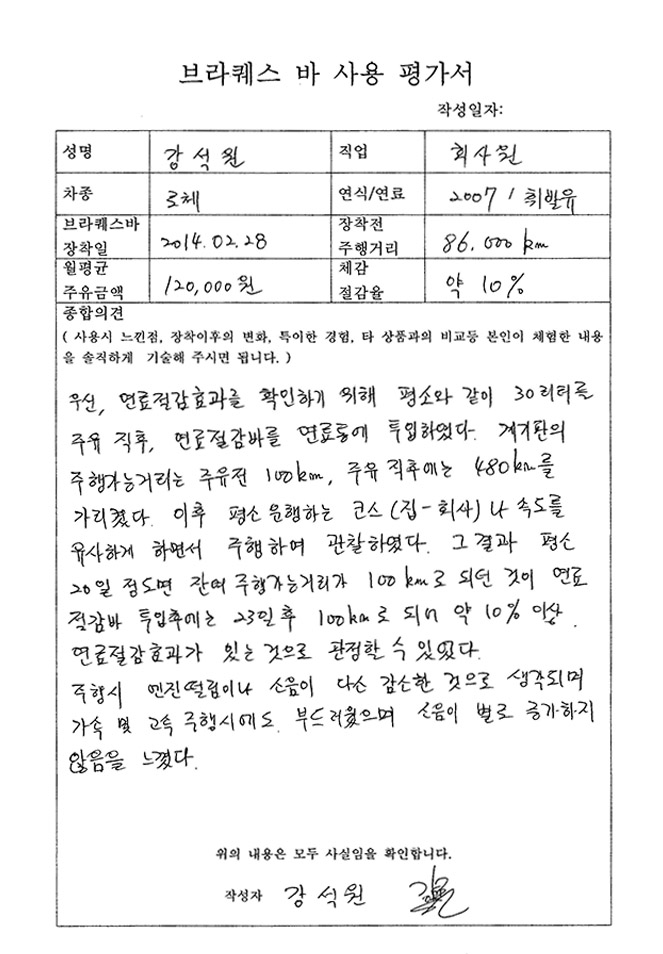 브라퀘스 바 사용 평가서
작성일자:
성명 강석원 직업 회사원
차종 로체 연식/연료 2007 / 휘발유
브라퀘스바 장착일 2014.02.28 장착전 주행거리 86,000 km
월평균 주유금액 120,000원 체감 절감율 약 10%
종합의견
( 사용시 느낀점, 장착이후의 변화, 특이한 경험, 타 상품과의 비교등 본인이 체험한 내용
을 솔직하게 기술해 주시면 됩니다. )
우선, 연료절감효과를 확인하기 위해 평소와 같이 30리터를
주유 직후, 연료절감바를 연료통에 투입하였다. 계기판의
주행가능거리는 주유전 100km, 주유 직후에는 480km를
가리켰다. 이후 평소 운행하는 코스(집-회사)나 속도를
유사하게 하면서 주행하며 관찰하였다. 그 결과 평소
20일 정도면 잔여 주행가능거리가 100km로 되던 것이 연료
절감바 투입후에는 23일 후 100km로 되어 약 10% 이상
연료절감효과가 있는 것으로 판정할 수 있었다.
주행시 엔진떨림이나 소음이 다소 감소한 것으로 생각되며
가속 및 고속 주행시에도 부드러웠으며 소음이 별로 증가하지
않음을 느꼈다.
위의 내용은 모두 사실임을 확인합니다.
작성자 강석원